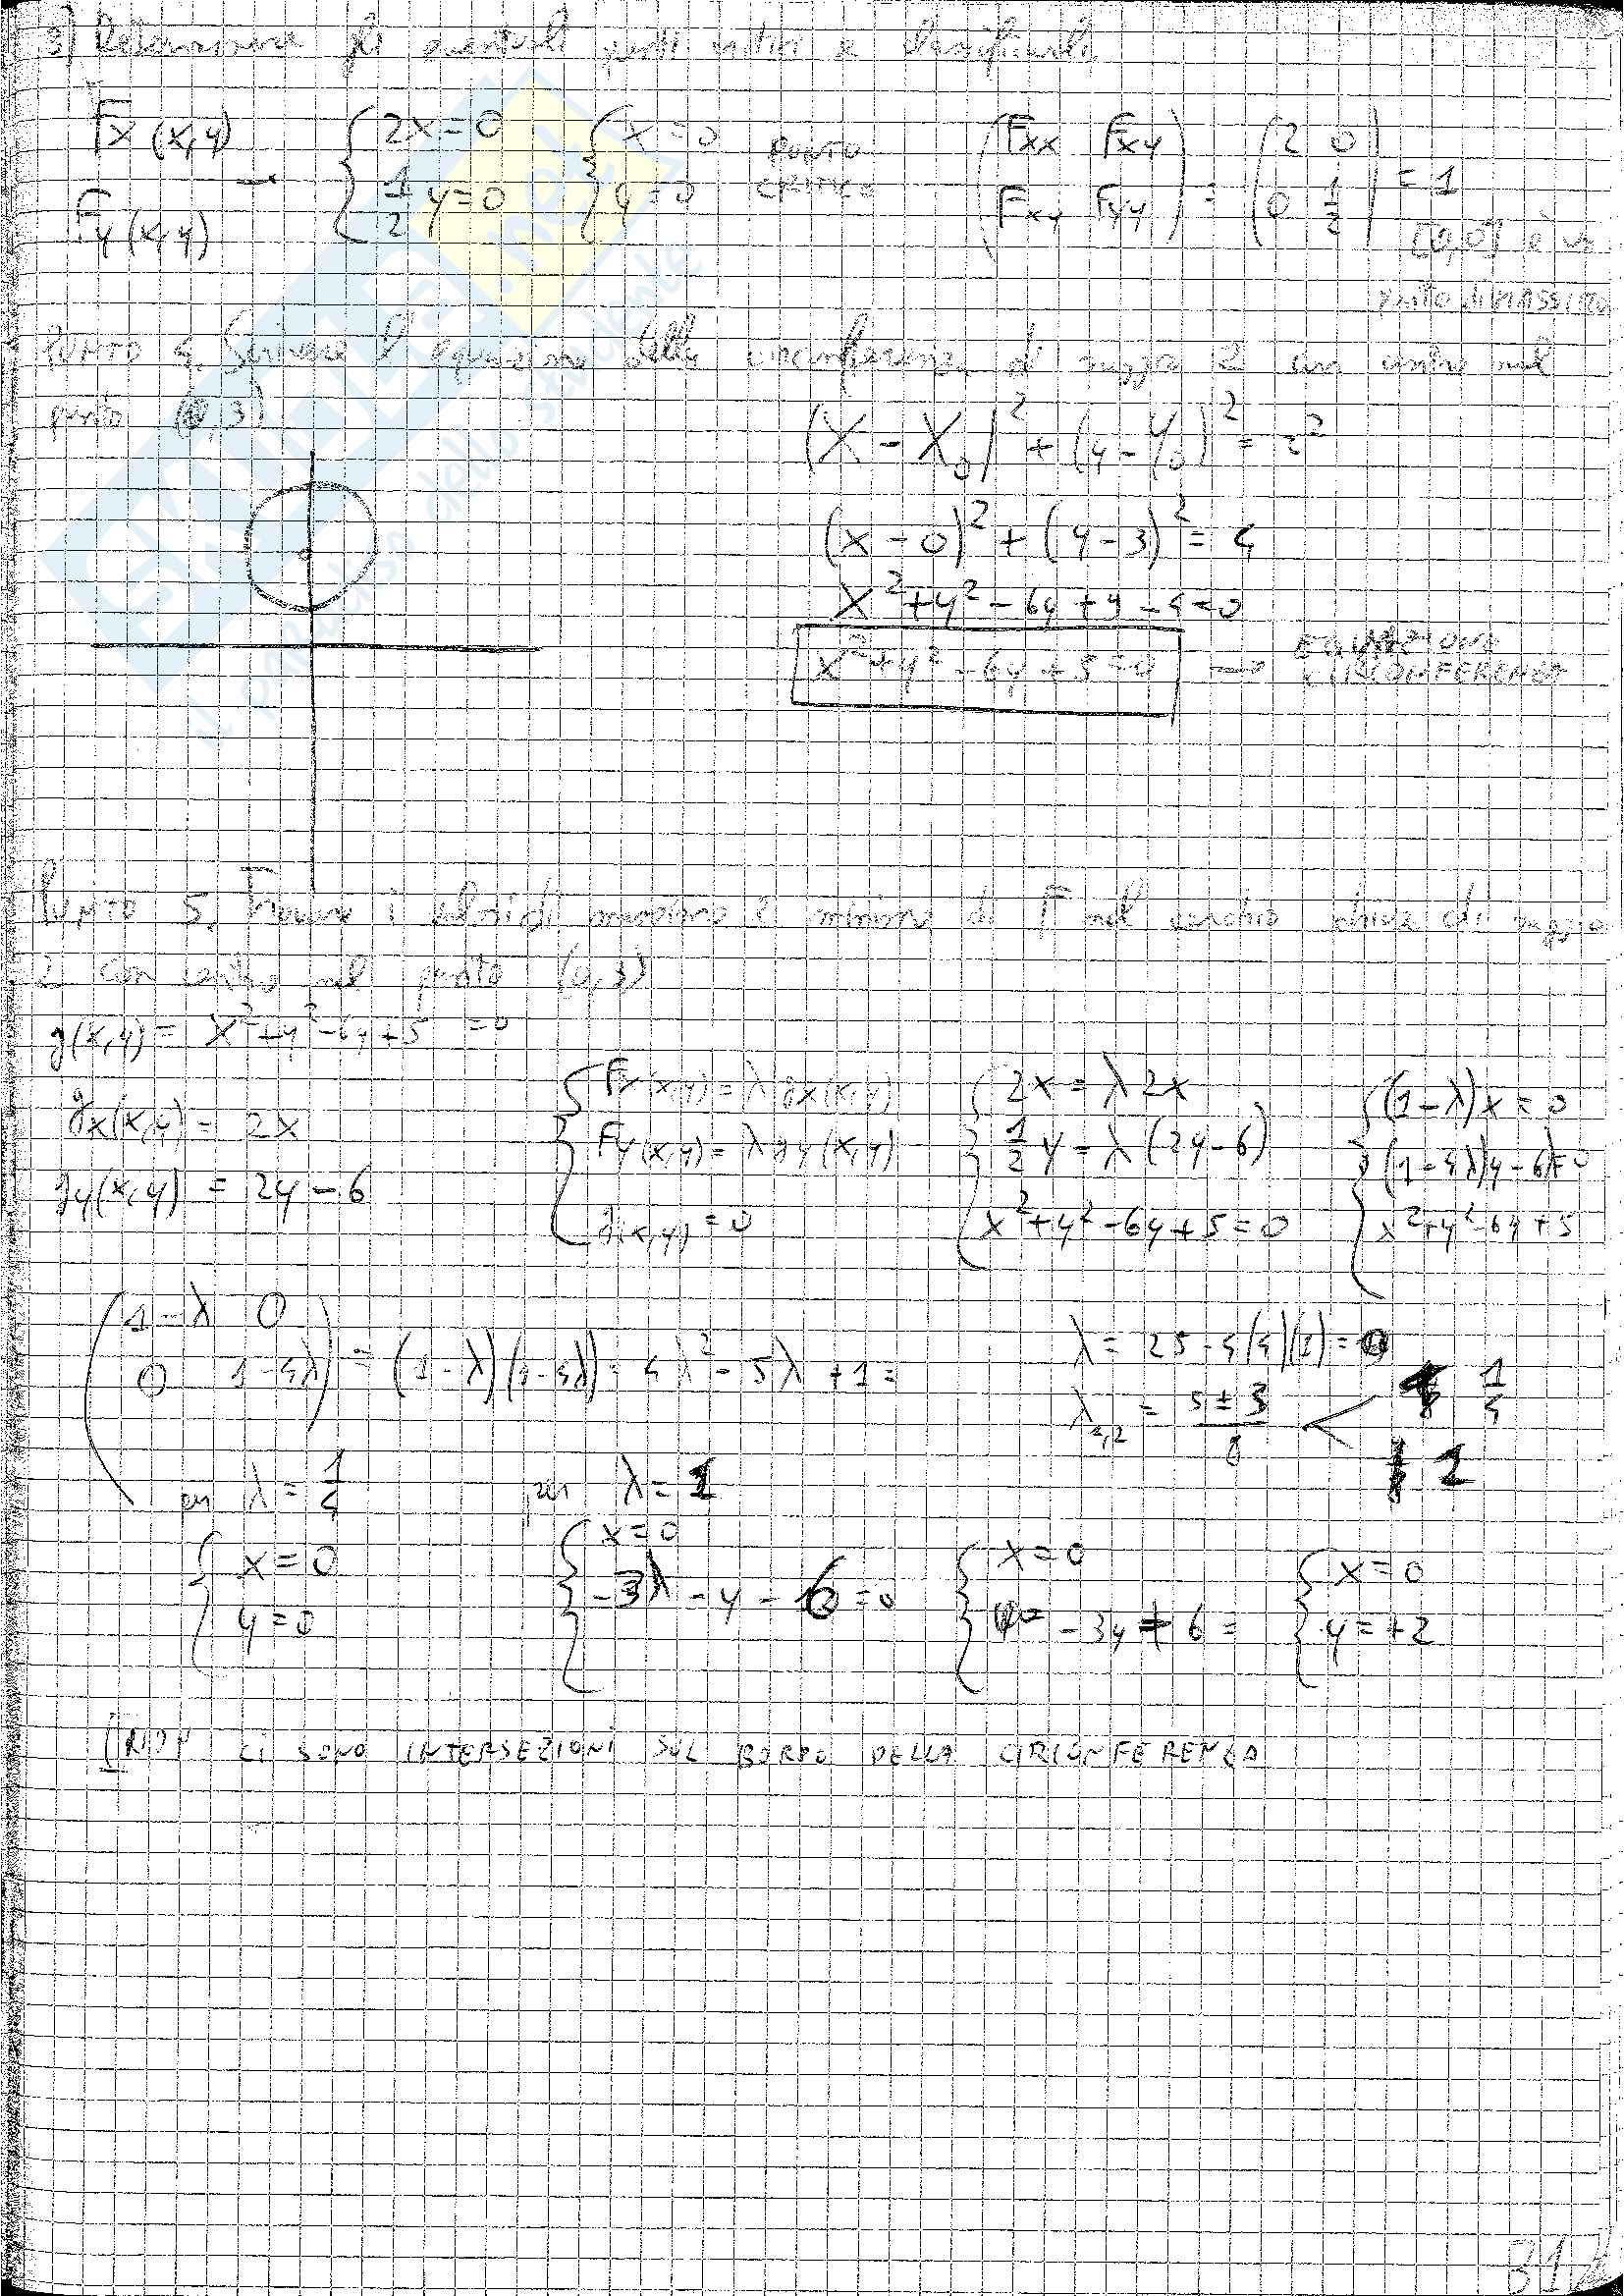 3) Determinare gli eventuali punti critici e classificarli.
Fx (x,y) → { 2x=0 { x=0 PUNTO CRITICO (Fxx Fxy) = (2 0) = 1
Fy (x,y) { 1/2 y=0 { y=0 (Fxy Fyy) (0 1/2) (0,0) è un
punto di MASSIMO
PUNTO 4. Scrivere l'equazione della circonferenza di raggio 2 con centro nel
punto (0,3)
(X - X0)² + (y - y0)² = r²
(x - 0)² + (y - 3)² = 4
x² + y² - 6y + 9 - 4 = 0
x² + y² - 6y + 5 = 0 → EQUAZIONE CIRCONFERENZA
PUNTO 5. Trovare i valori di massimo e minimo di F nel cerchio chiuso di raggio
2 con centro nel punto (0,3)
g(x,y) = x²+y²-6y+5 = 0
gx(x,y) = 2x
gy(x,y) = 2y - 6
{ Fx(x,y) = λ gx(x,y) { 2x = λ 2x { (1-λ)x = 0
{ Fy(x,y) = λ gy(x,y) { 1/2 y = λ (2y-6) { (1-4λ)y - 6 = 0
{ g(x,y) = 0 { x²+y²-6y+5=0 { x²+y²-6y+5
(1-λ 0)
(0 1-4λ) = (1-λ)(1-4λ) = 4λ² - 5λ + 1 =
λ = 25 - 4(4)(1) =
λ1,2 = 5±3 / 8 < 1/4
1
per λ = 1/4 per λ = 1
{ x=0 { x=0 { x=0 { x=0
{ y=0 { -3λ - y - 6 = 0 { -3y + 6 = { y = +2
NON CI SONO INTERSEZIONI SUL BORDO DELLA CIRCONFERENZA